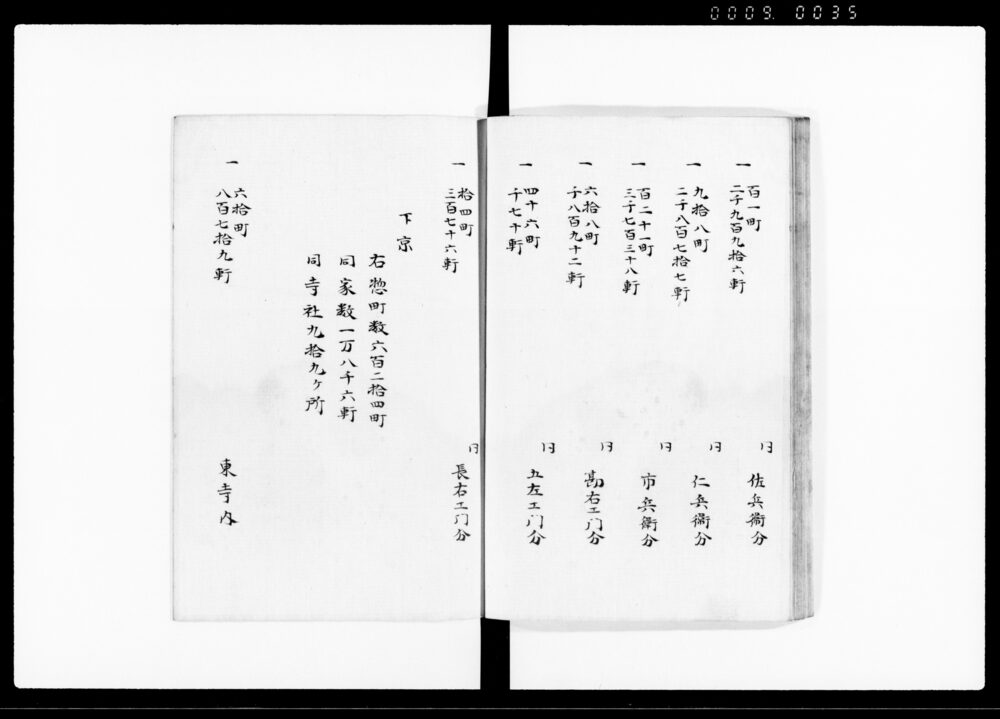 0009 0035
一 百一町
二千九百九拾六軒
同 佐兵衛分
一 九拾八町
二千八百七拾七軒
同 仁兵衛分
一 百二十一町
三千七百三十八軒
同 市兵衛分
一 六拾八町
千八百九十二軒
同 勘右エ门分
一 四十六町
千七十軒
同 五左エ门分
一 拾四町
三百七十六軒
同 長右エ门分
下京
右惣町数六百二拾四町
同家数一万八千六軒
同寺社九拾九ヶ所
一 六拾町
八百七拾九軒
東寺内